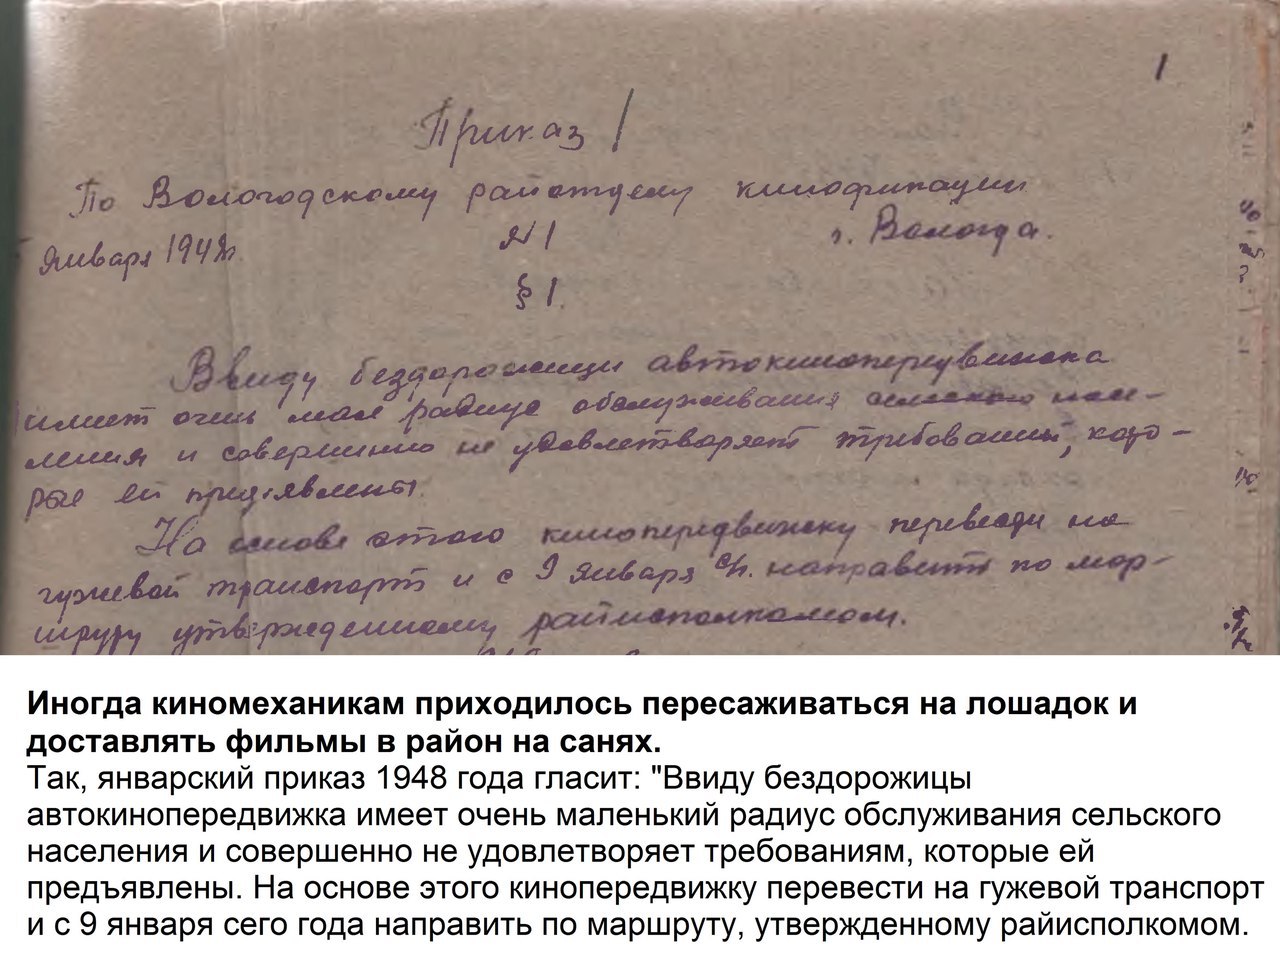 1
Приказ
По Вологодскому райотделу кинофикации
Января 1948г. №1 г. Вологда.
§ 1.
Ввиду бездорожицы автокинопередвижка
имеет очень мал радиус обслуживания сельского насе-
ления и совершенно не удовлетворяет требованиям, кото-
рые ей предъявлены.
На основе этого кинопередвижку перевести на
гужевой транспорт и с 9 января с/г. направить по мар-
шруту утвержденному райисполкомом.
Иногда киномеханикам приходилось пересаживаться на лошадок и
доставлять фильмы в район на санях.
Так, январский приказ 1948 года гласит: "Ввиду бездорожицы
автокинопередвижка имеет очень маленький радиус обслуживания сельского
населения и совершенно не удовлетворяет требованиям, которые ей
предъявлены. На основе этого кинопередвижку перевести на гужевой транспорт
и с 9 января сего года направить по маршруту, утвержденному райисполкомом.